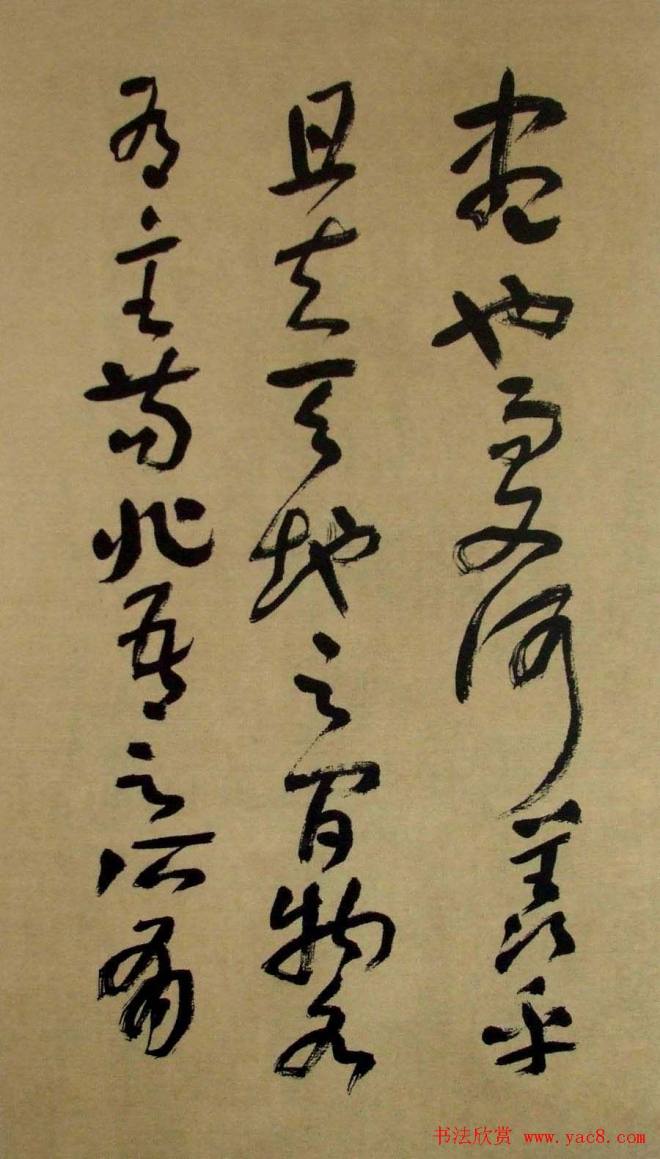 尽也而又何羡乎
且夫天地之间物各
有主苟非吾之所有
书法欣赏 www.yac8.com